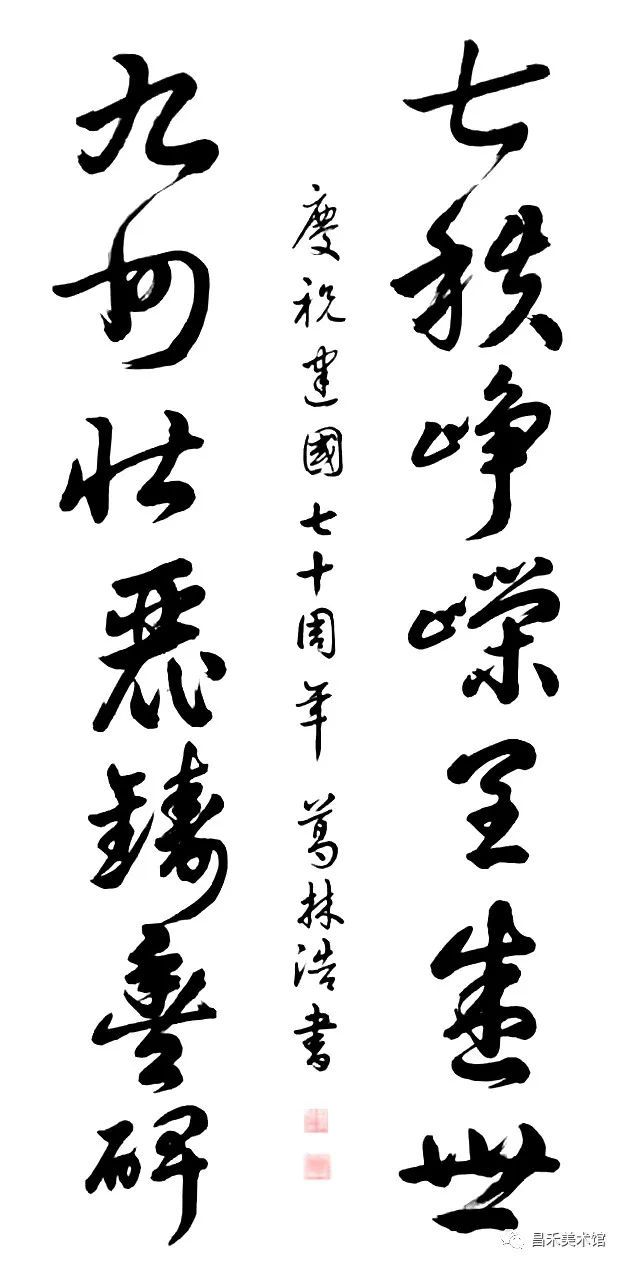 七秩峥嶸呈盛世
九州壮麗鑄豐碑
慶祝建國七十周年 葛林浩書
昌禾美术馆